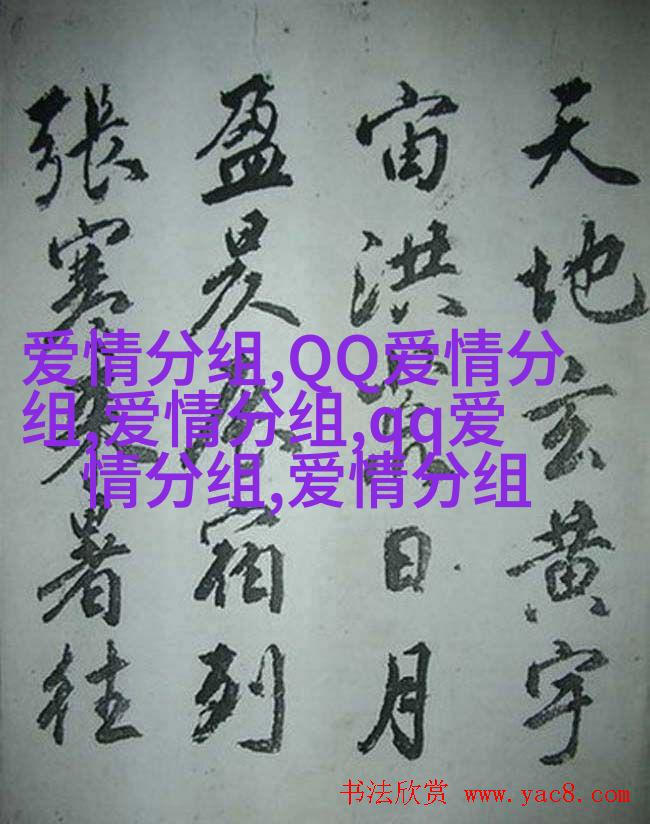 天地玄黄宇
宙洪荒日月
盈昃辰宿列
張寒来暑往
爱情分组,QQ爱情分
组,爱情分组,qq爱
情分组,爱情分组
书法欣赏 www.yac8.com